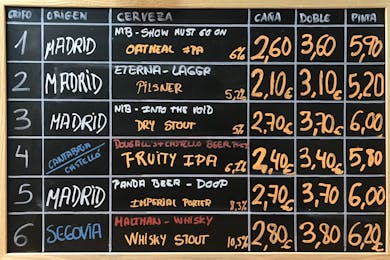 GRIFO ORIGEN CERVEZA CAÑA DOBLE PINTA
1 MADRID MTB - SHOW MUST GO ON 2,60 3,60 5,90
OATMEAL IPA 6%
2 MADRID ETERNA - LAGER 2,10€ 3,10€ 5,20
PILSNER 5,2%
3 MADRID MTB - INTO THE VOID 2,70€ 3,70€ 6,00
DRY STOUT 5%
4 CANTABRIA DOUGALL'S + CASTELLO BEER 2,40€ 3,40€ 5,80
CASTELLÓ FRUITY IPA
5 MADRID PANDA BEER - DOOP 2,70€ 3,70 6,00
IMPERIAL PORTER 8,3%
6 SEGOVIA MALTMAN - WHISKY 2,80€ 3,80 6,20
WHISKY STOUT 10,5%